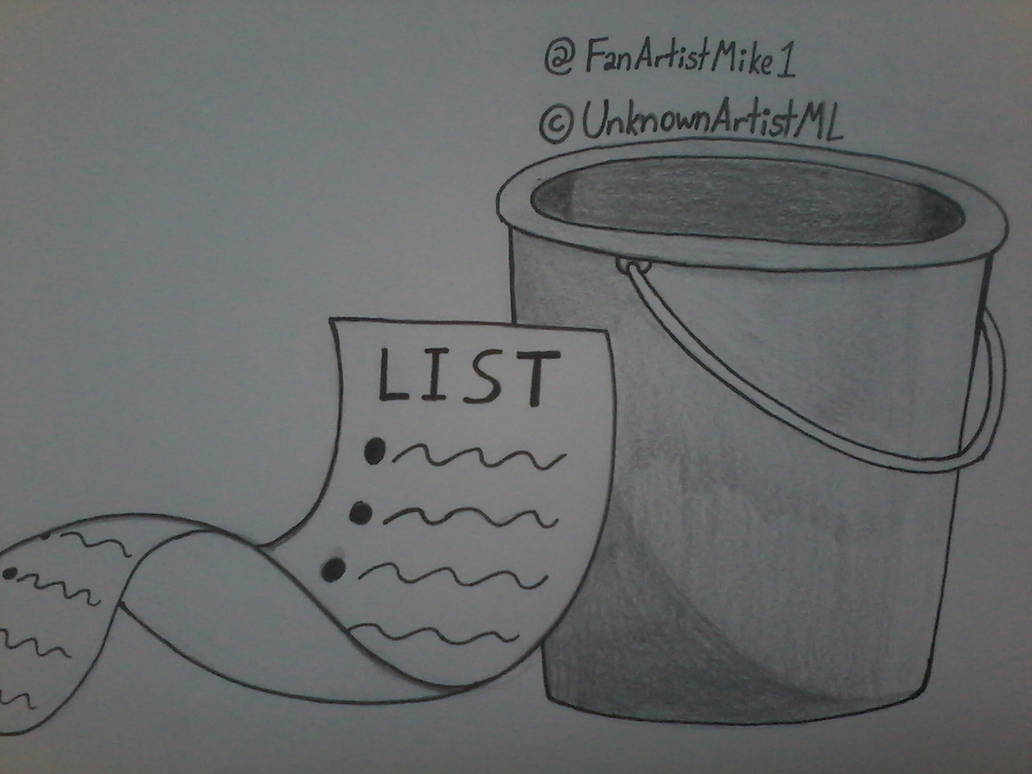 @ FanArtistMike1
© UnknownArtistML
LIST